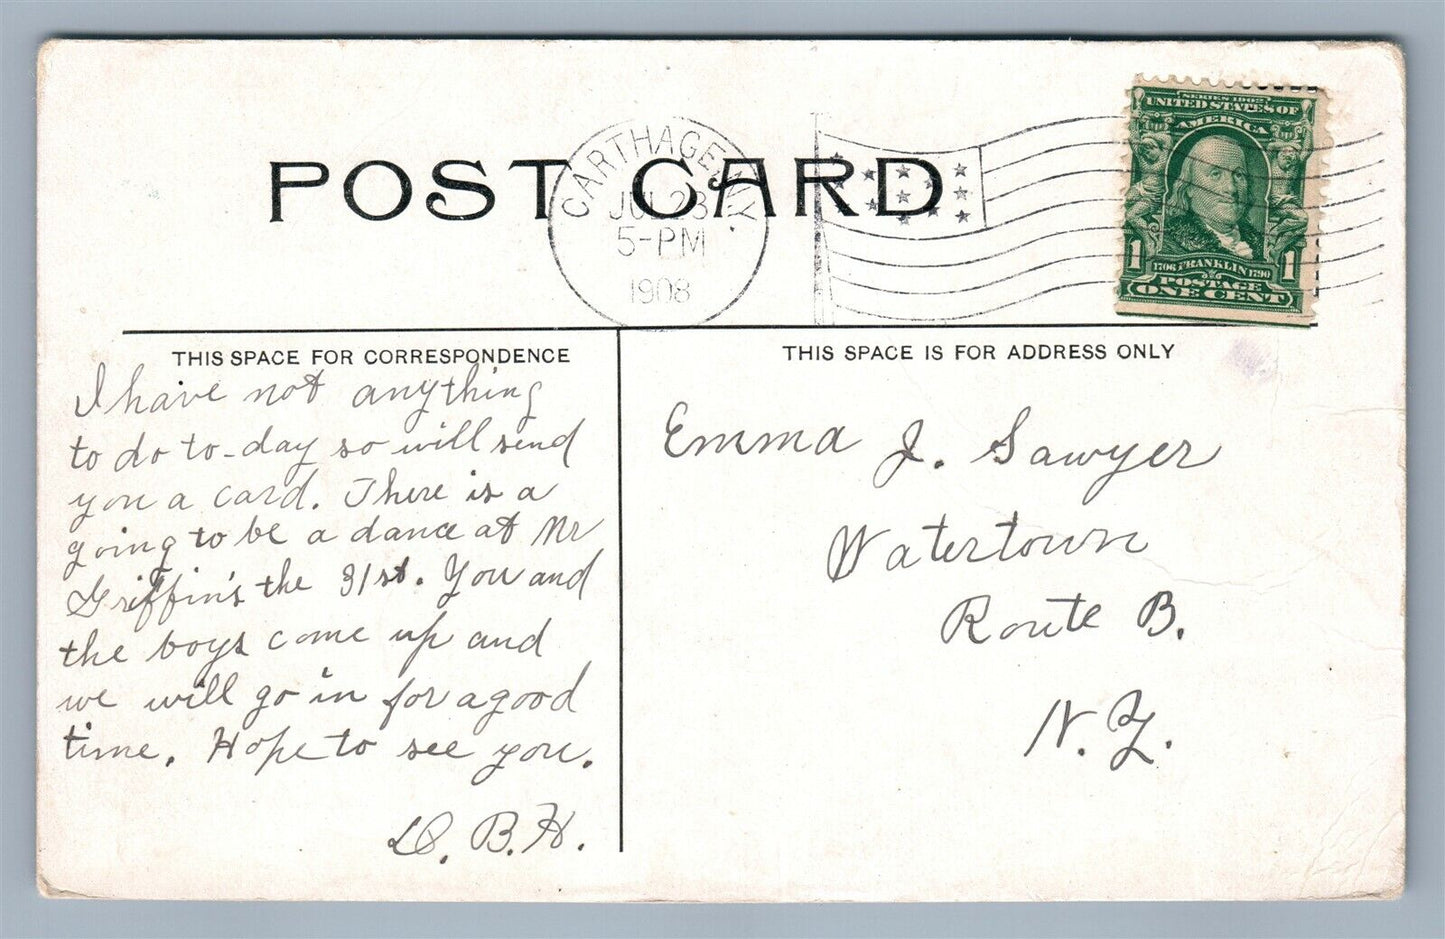 POST CARD
CARTHAGE, N.Y.
JUL 23
5-PM
1908
SERIES 1902
UNITED STATES OF
AMERICA
1 1
1706 FRANKLIN 1790
POSTAGE
ONE CENT
THIS SPACE FOR CORRESPONDENCE
I have not anything
to do to-day so will send
you a card. There is a
going to be a dance at Mr
Griffin's the 31st. You and
the boys come up and
we will go in for a good
time. Hope to see you.
B.H.
THIS SPACE IS FOR ADDRESS ONLY
Emma J. Sawyer
Watertown
Route B.
N.Y.